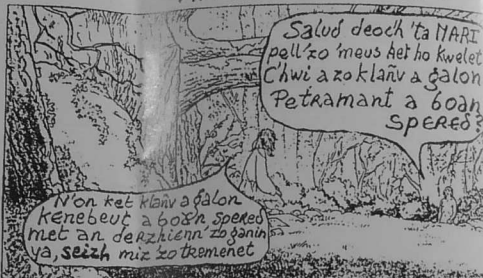 Salud deoc'h 'ta MARI
pell'zo 'meus ket ho kwelet
C'hwi a zo klañv a galon
Petramant a boan
SPERED?
N'on ket klañv a galon
kenebeut a boa'n spered
met an derzhienn'zo ganin
ya, seizh miz zo tremenet